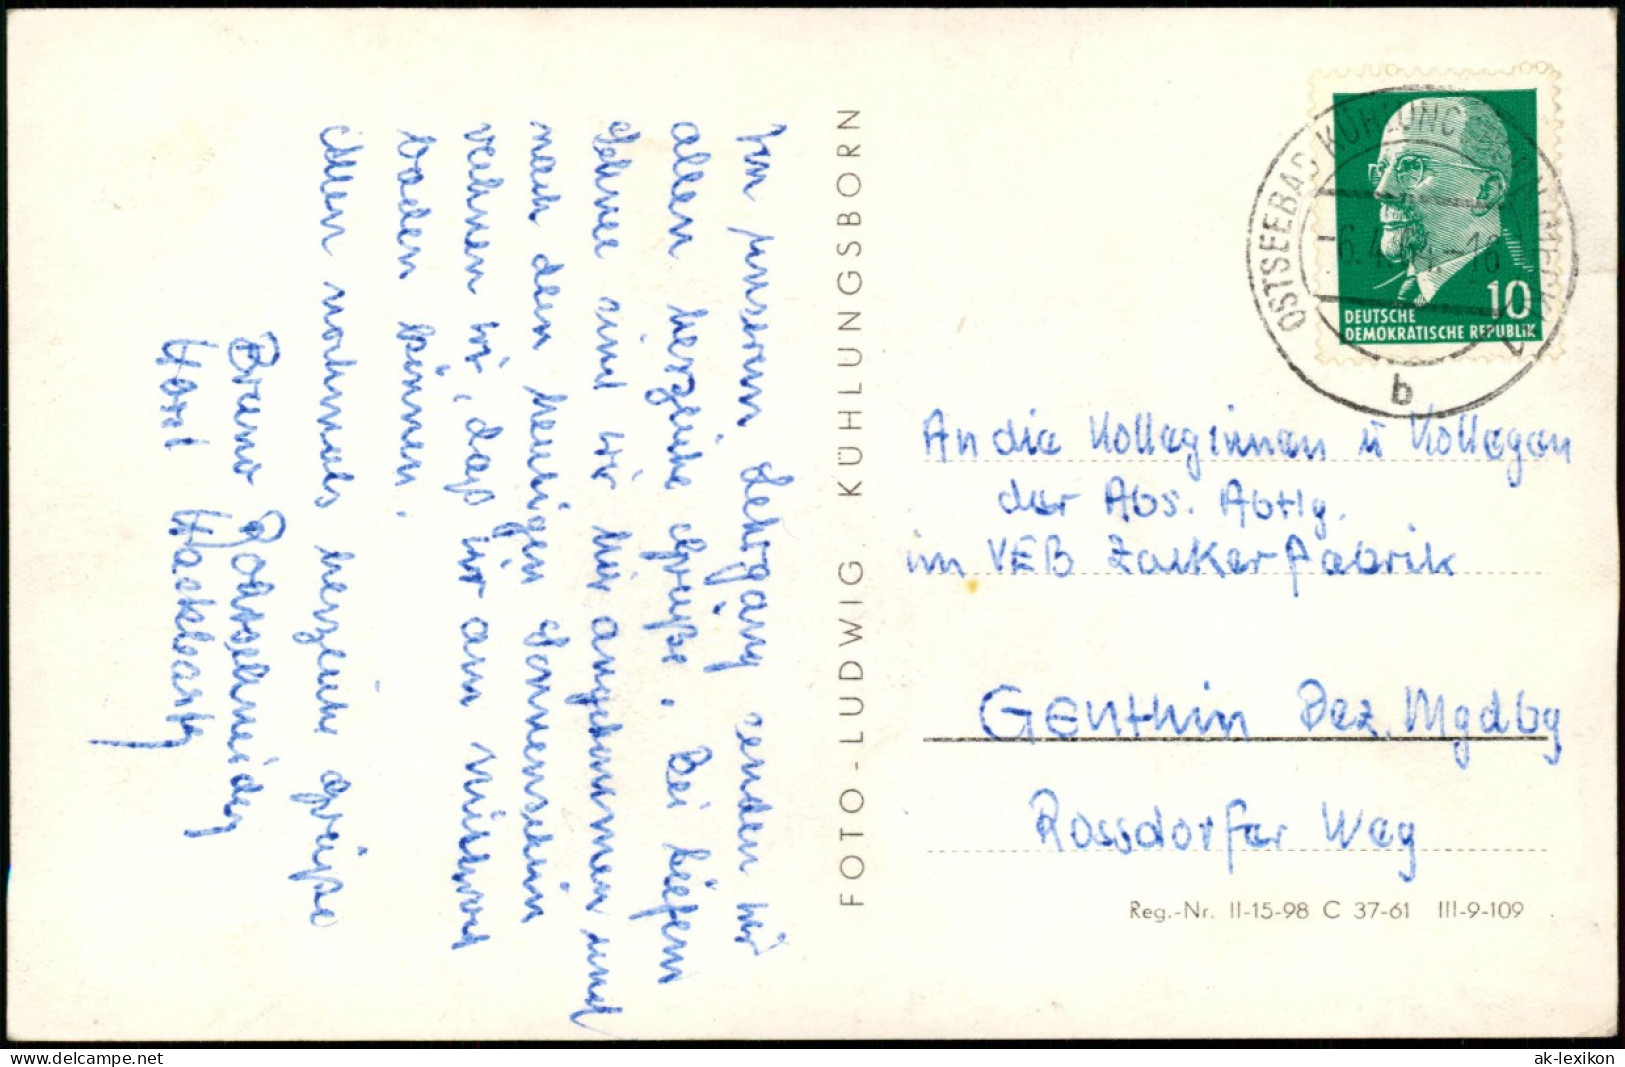 Von unserem Lehrgang senden wir
allen herzliche Grüße. Bei tiefem
Schnee sind wir hier angekommen und
nach dem heutigen Sonnenschein
rechnen wir, daß wir am Mittwoch
baden können.
Allen nochmals herzliche Grüße
Bruno
Horst
FOTO-LUDWIG. KÜHLUNGSBORN
OSTSEEBAD KÜHLUNGSBORN
-6.4.61.-18
b
10
DEUTSCHE
DEMOKRATISCHE REPUBLIK
An die Kolleginnen u Kollegen
der Abs. Abtlg.
im VEB Zuckerfabrik
Genthin Bez. Mgdbg
Rossdorfer Weg
Reg.-Nr. II-15-98 C 37-61 III-9-109
www.delcampe.net
ak-lexikon